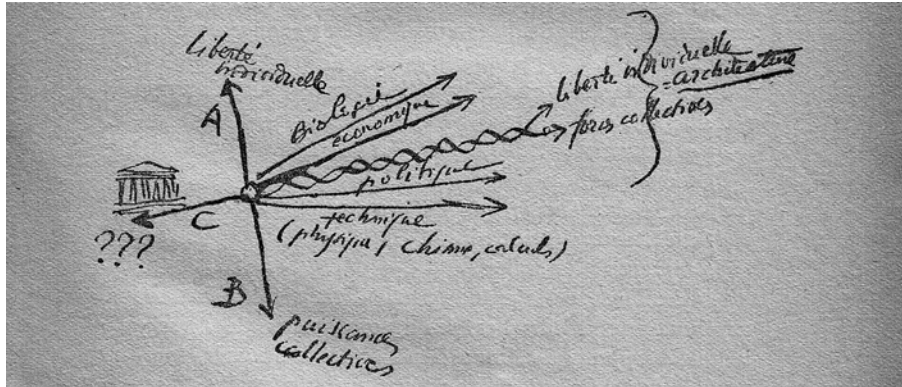 liberté
individuelle
A
Biologie
économique
liberté individuelle
= architecture
forces collectives
politique
C
technique
(physique, chimie, calculs)
???
B
puissances
collectives